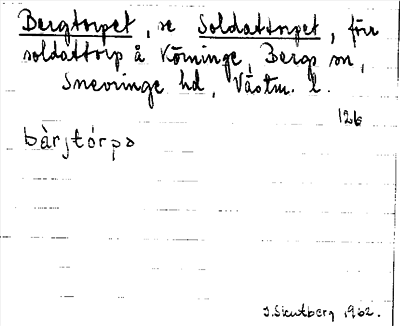 Bergtorpet, se Soldattorpet, förr
soldattorp å Köminge, Bergs sn,
Snevringe hd, Västm. l.
126
bàrjtórpə
J. Sieutberg 1962.